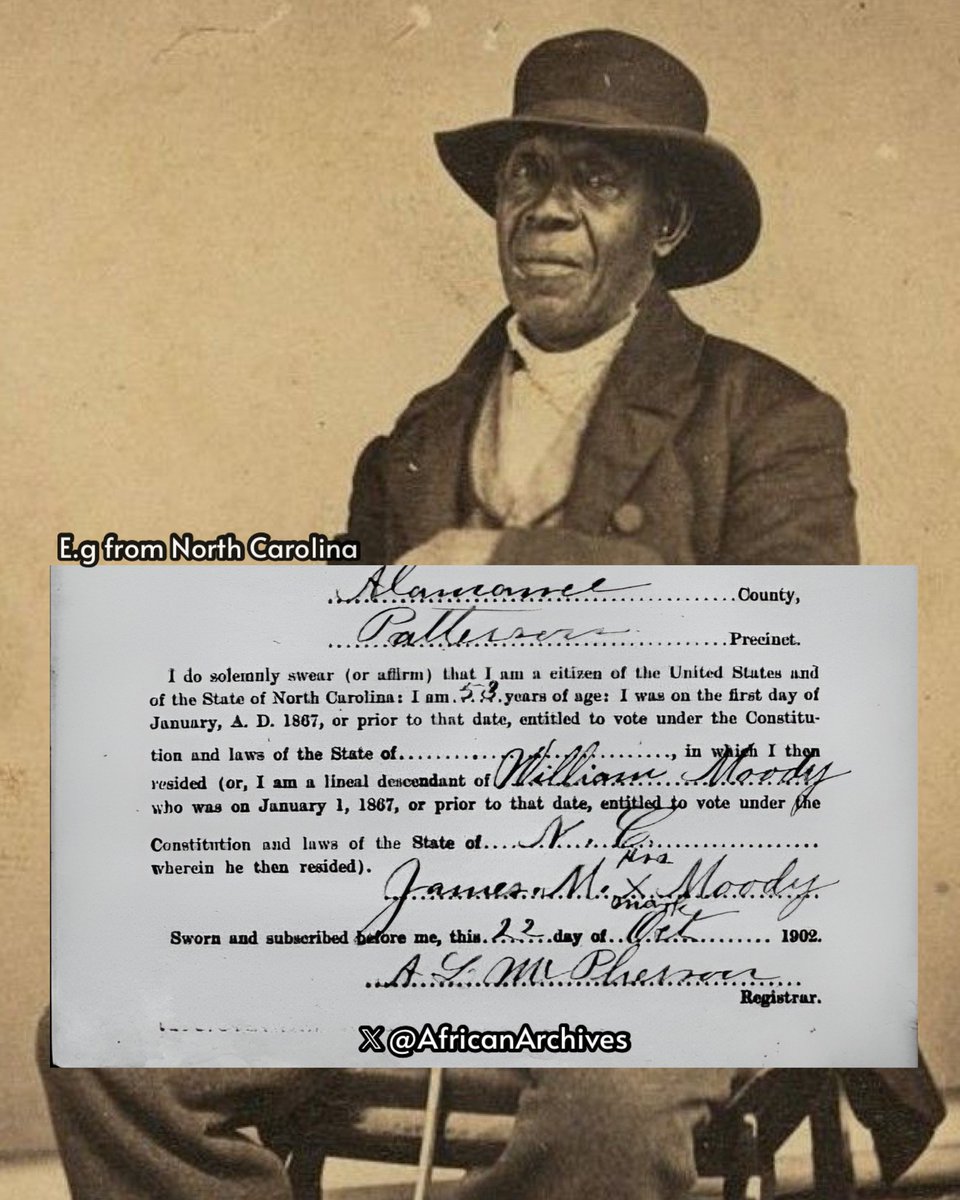 E.g from North Carolina
Alamance County,
Patterson Precinct.
I do solemnly swear (or affirm) that I am a citizen of the United States and
of the State of North Carolina: I am 53 years of age: I was on the first day of
January, A. D. 1867, or prior to that date, entitled to vote under the Constitu-
tion and laws of the State of, in which I then
resided (or, I am a lineal descendant of William Moody
who was on January 1, 1867, or prior to that date, entitled to vote under the
Constitution and laws of the State of N. C.
wherein he then resided).
His
James M. X Moody
mark
Sworn and subscribed before me, this 22 day of Oct 1902.
A L McPherson
Registrar.
X @AfricanArchives